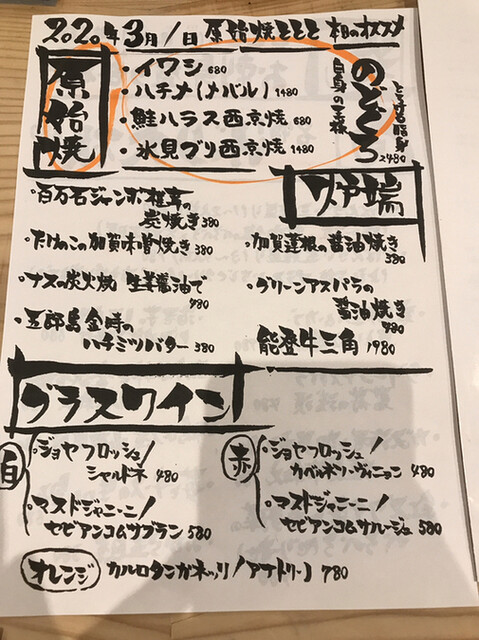 2020年3月1日 原始焼ととと 本日のオススメ
原始焼
・イワシ 680
・ハチメ(メバル) 1480
・鮭ハラス西京焼 680
・氷見ブリ西京焼 1480
とろける脂身
のどぐろ 2480
白身の王様
炉端
・百万石ジャンボ椎茸の
炭焼き 380
・たけのこの加賀味噌焼き 380
・ナスの炭火焼 生姜醤油で
480
・五郎島金時の
ハチミツバター 380
・加賀蓮根の醤油焼き
380
・グリーンアスパラの
醤油焼き
480
能登牛三角 1980
グラスワイン
白
・ジョヤフロッシュ/
シャルドネ 480
・マスドジャニーニ/
セピアンコムサブラン 580
赤
・ジョヤフロッシュ/
カベルネソーヴィニョン 480
・マスドジャニーニ/
セピアンコムサルージュ 580
オレンジ
カルロタンガネッリ/アナトリーノ 780